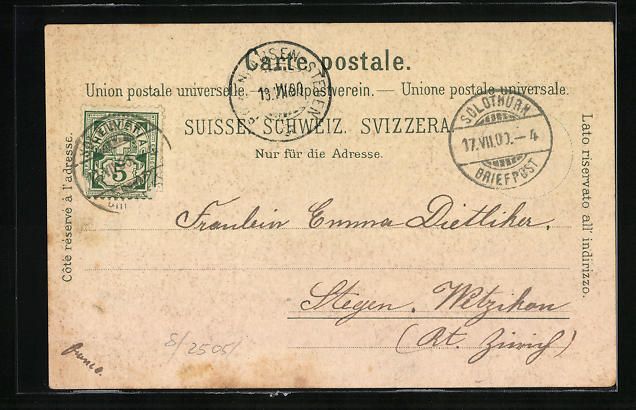 Carte postale.
Union postale universelle. — Weltpostverein. — Unione postale universale.
SUISSE. SCHWEIZ. SVIZZERA.
Nur für die Adresse.
Côté réservé à l'adresse.
Lato riservato all' indirizzo.
HELVETIA
5
STEGEN
SOLOTHURN
17.VII.00.–4
BRIEFPOST
Fräulein Emma Dietliker.
Stegen. Wetzikon
(Kt. Zürich)
8/2505
franco.